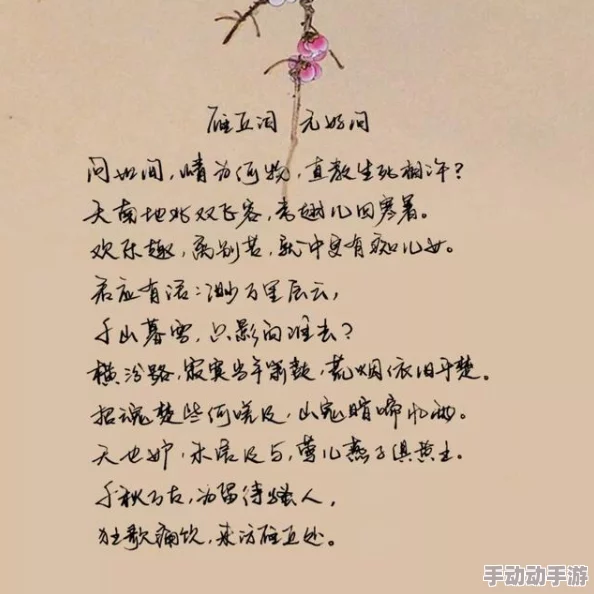 雁丘词 元好问
问世间,情为何物,直教生死相许?
天南地北双飞客,老翅几回寒暑。
欢乐趣,离别苦,就中更有痴儿女。
君应有语:渺万里层云,
千山暮雪,只影向谁去?
横汾路,寂寞当年箫鼓,荒烟依旧平楚。
招魂楚些何嗟及,山鬼暗啼风雨。
天也妒,未信与,莺儿燕子俱黄土。
千秋万古,为留待骚人,
狂歌痛饮,来访雁丘处。
手动动手游